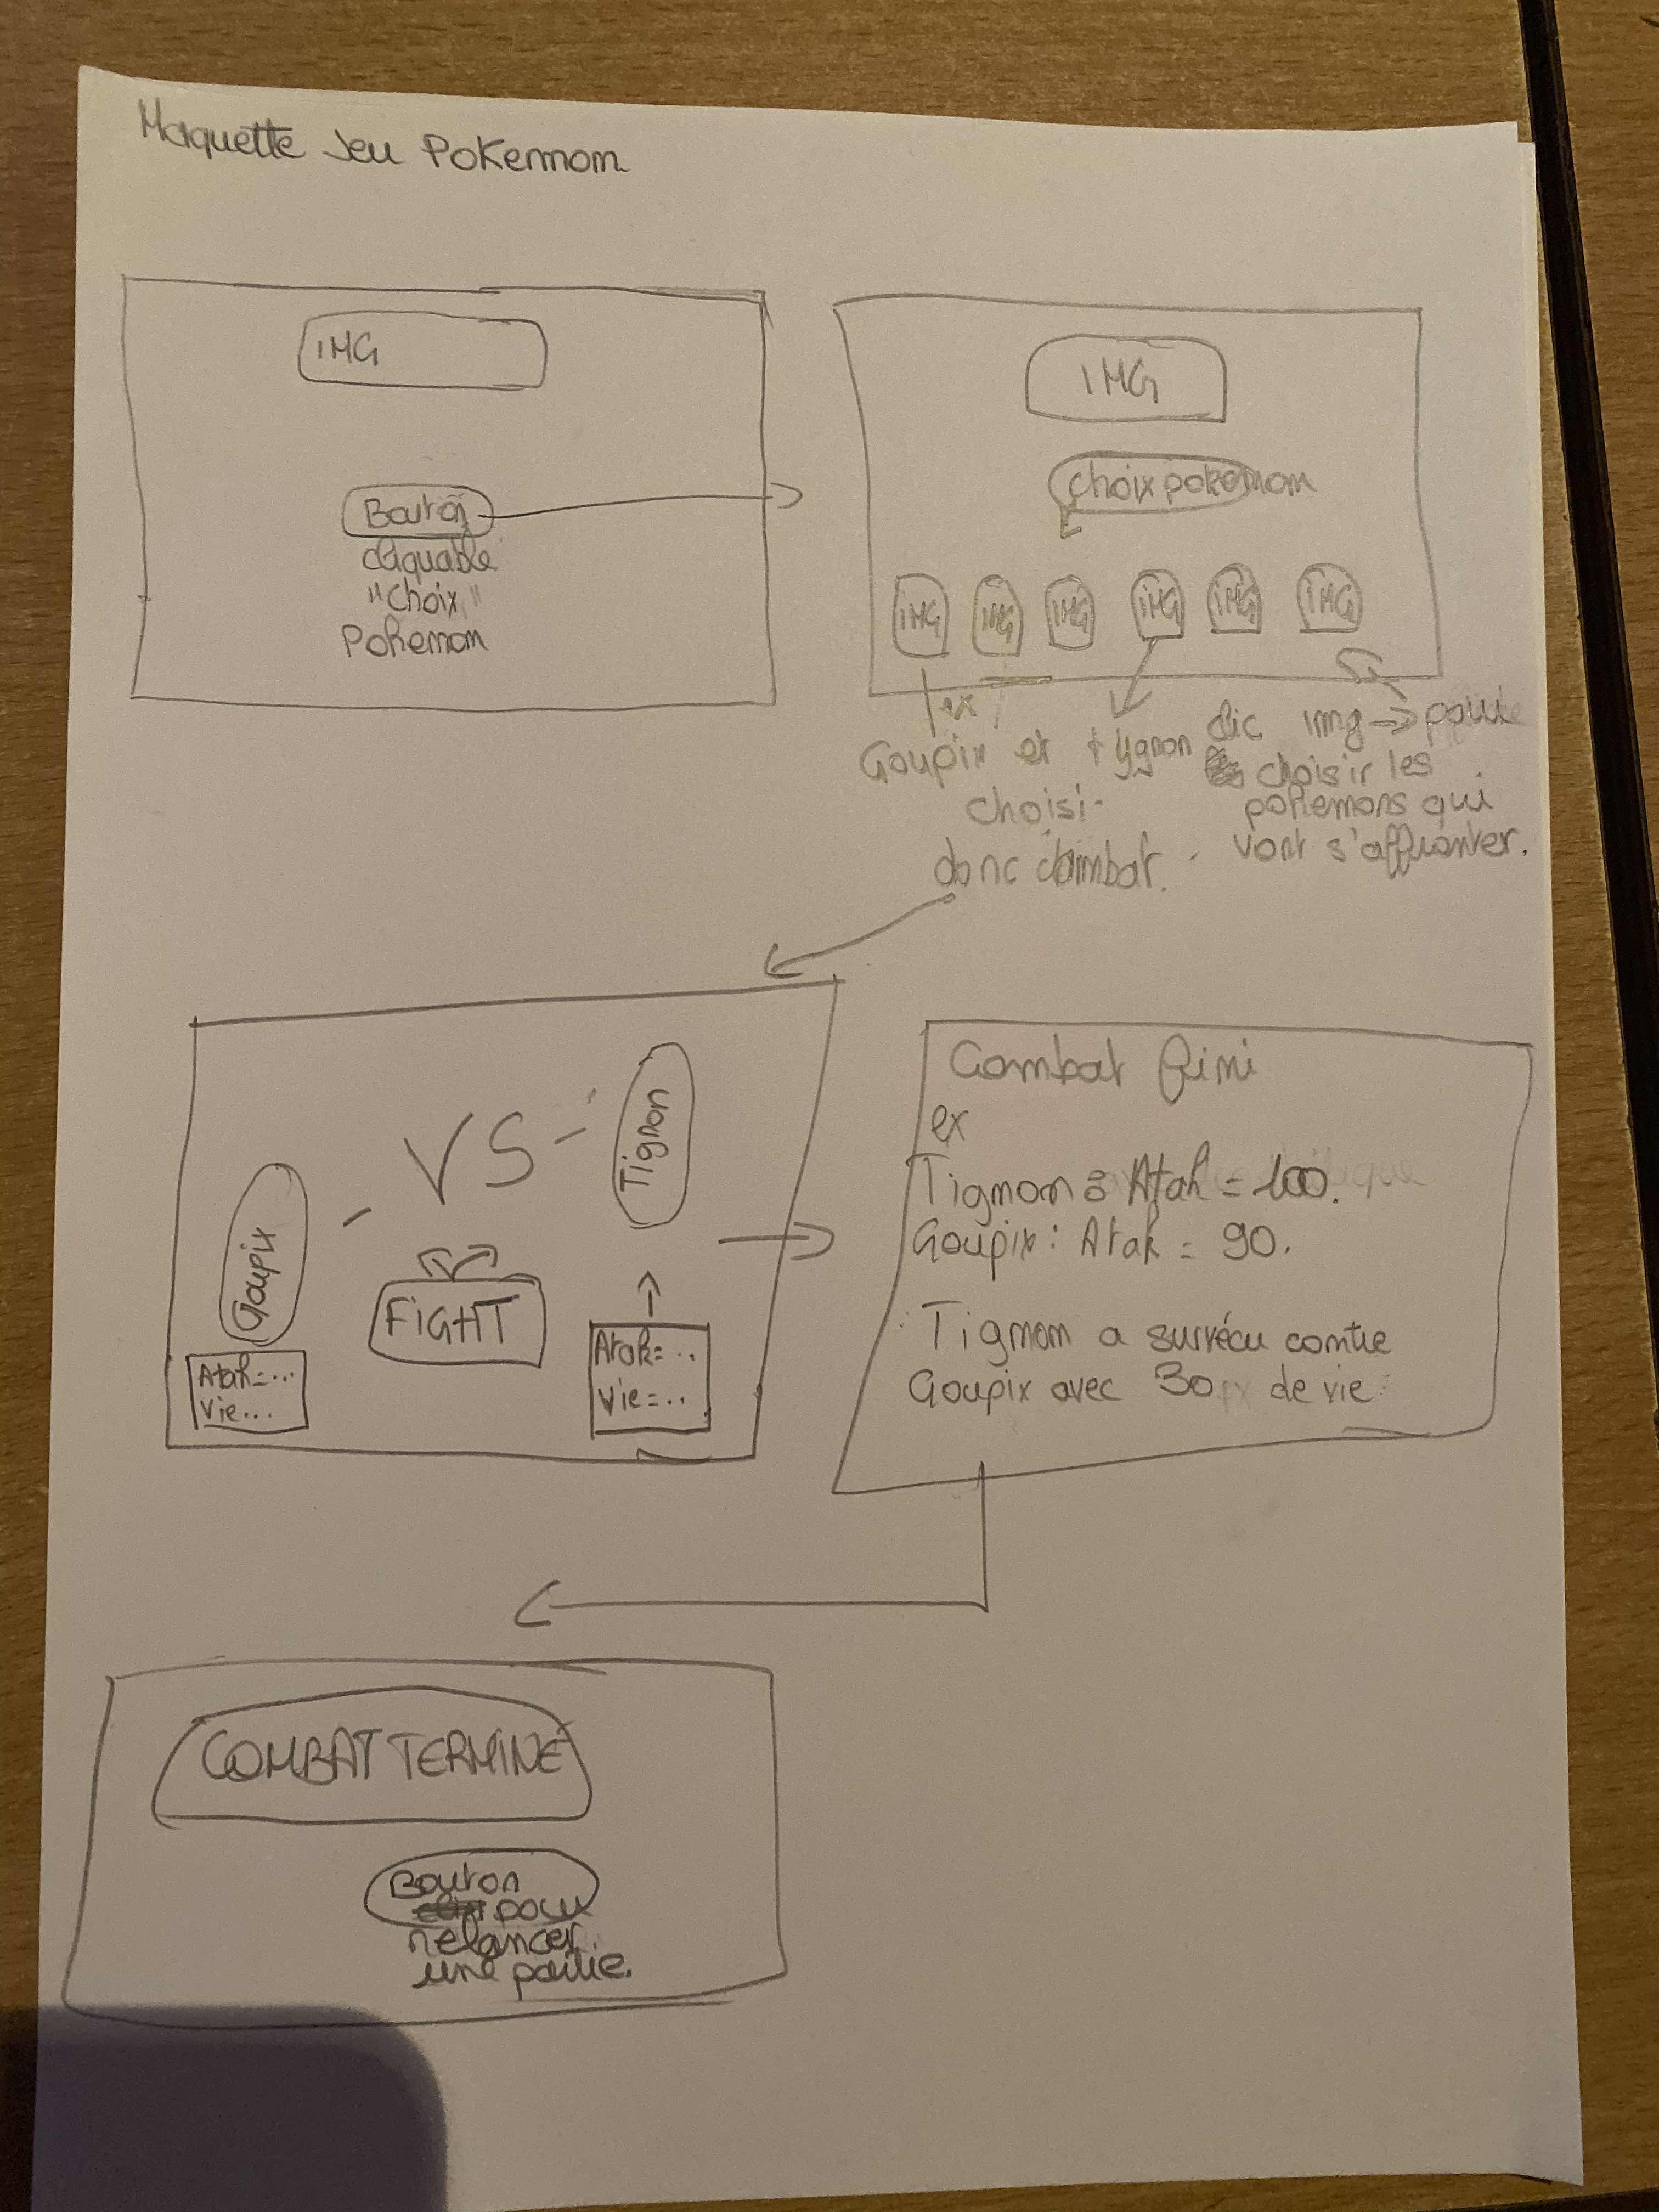 Maquette Jeu Pokemom
IMG
Bouton
cliquable
"Choix"
Pokemom
IMG
choix pokemom
IMG IMG IMG IMG IMG IMG
ex
Goupix et tygnon
choisi
donc combat.
clic img → pour
choisir les
pokemons qui
vont s'affronter.
VS
Goupix
Tignon
FIGHT
Atak=...
Vie...
Atak=..
Vie=..
Combat fini
ex
Tigmon : Atak = 100.
Goupix : Atak = 90.
Tigmom a survécu contre
Goupix avec 30 de vie
COMBAT TERMINÉ
Bouton
pour
relancer
une partie.